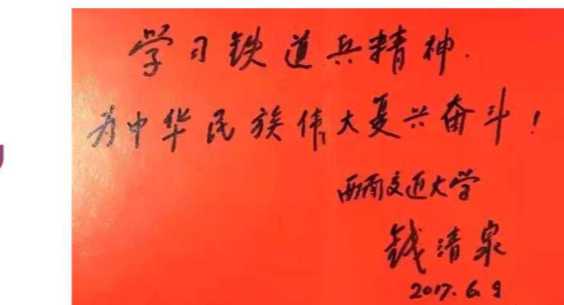 学习铁道兵精神.
为中华民族伟大复兴奋斗!
西南交通大学
钱清泉
2017.6.9